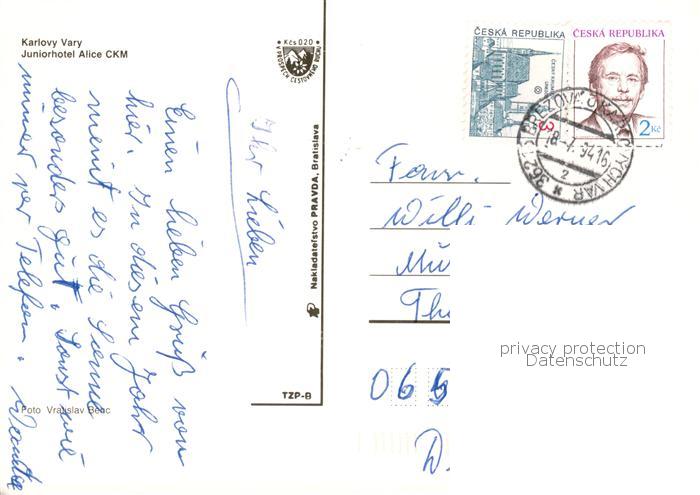 Karlovy Vary
Juniorhotel Alice CKM
Kčs 0,20
V PROSPĚCH CESTOVNÉHO RUCHU
Ihr Lieben
Einen lieben Gruß von
hier. In diesem Jahr
meint es die Sonne
besonders gut. Sonst wie
immer per Telefon.
Foto Vratislav Benc
Nakladateľstvo PRAVDA, Bratislava
TZP-B
ČESKÁ REPUBLIKA
3
ČESKÁ REPUBLIKA
2 Kč
94 16
2
Fam.
Willi Werner
Mü
Th
privacy protection
Datenschutz
06
D.